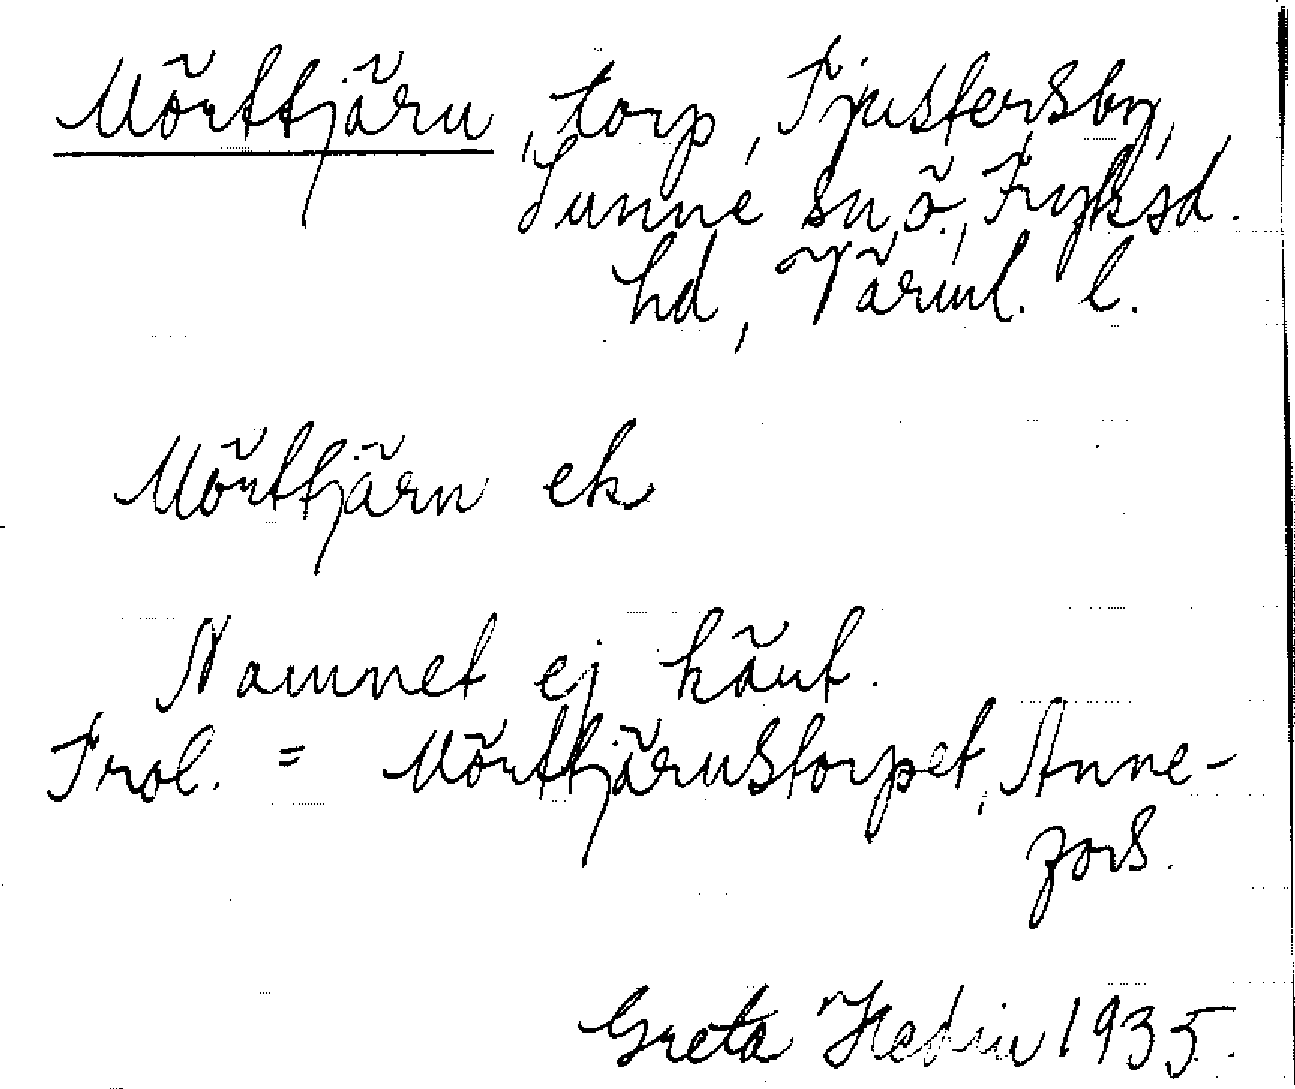 Mörttjärn, torp, Tjustersby,
Sunne sn, ö., Fryksd.
hd, Värml. l.
Mörttjärn ek
Namnet ej känt.
Trol. = Mörttjärnstorpet, Anne-
fors.
Greta Hedin 1935.